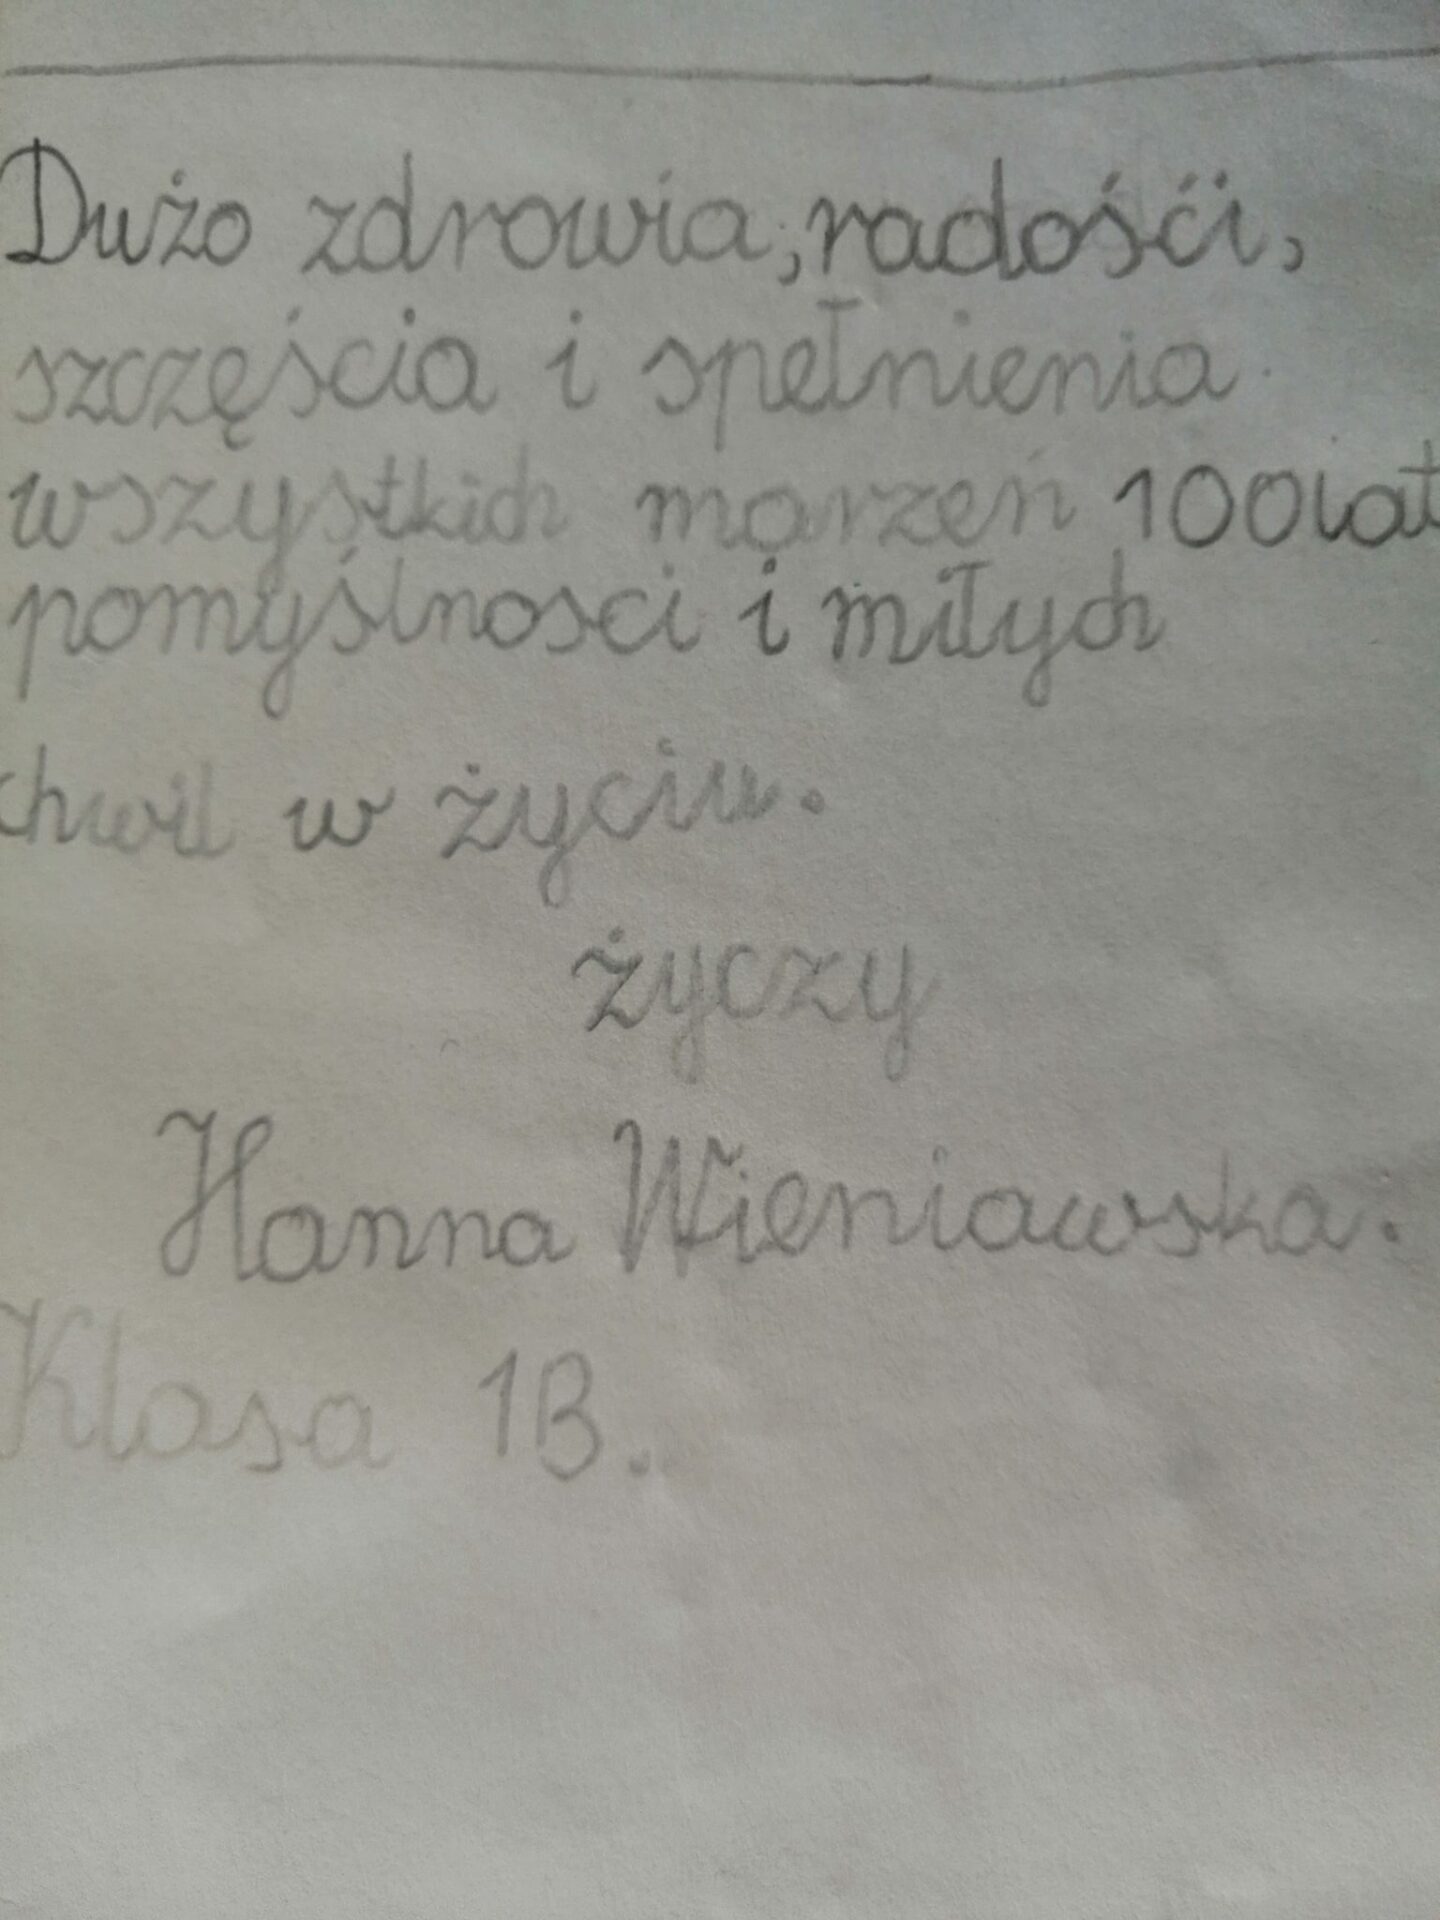 Dużo zdrowia, radośći,
szczęścia i spełnienia
wszystkich marzeń 100 lat
pomyślnosci i miłych
chwil w życiu.
życzy
Hanna Wieniawska.
Klasa 1B.